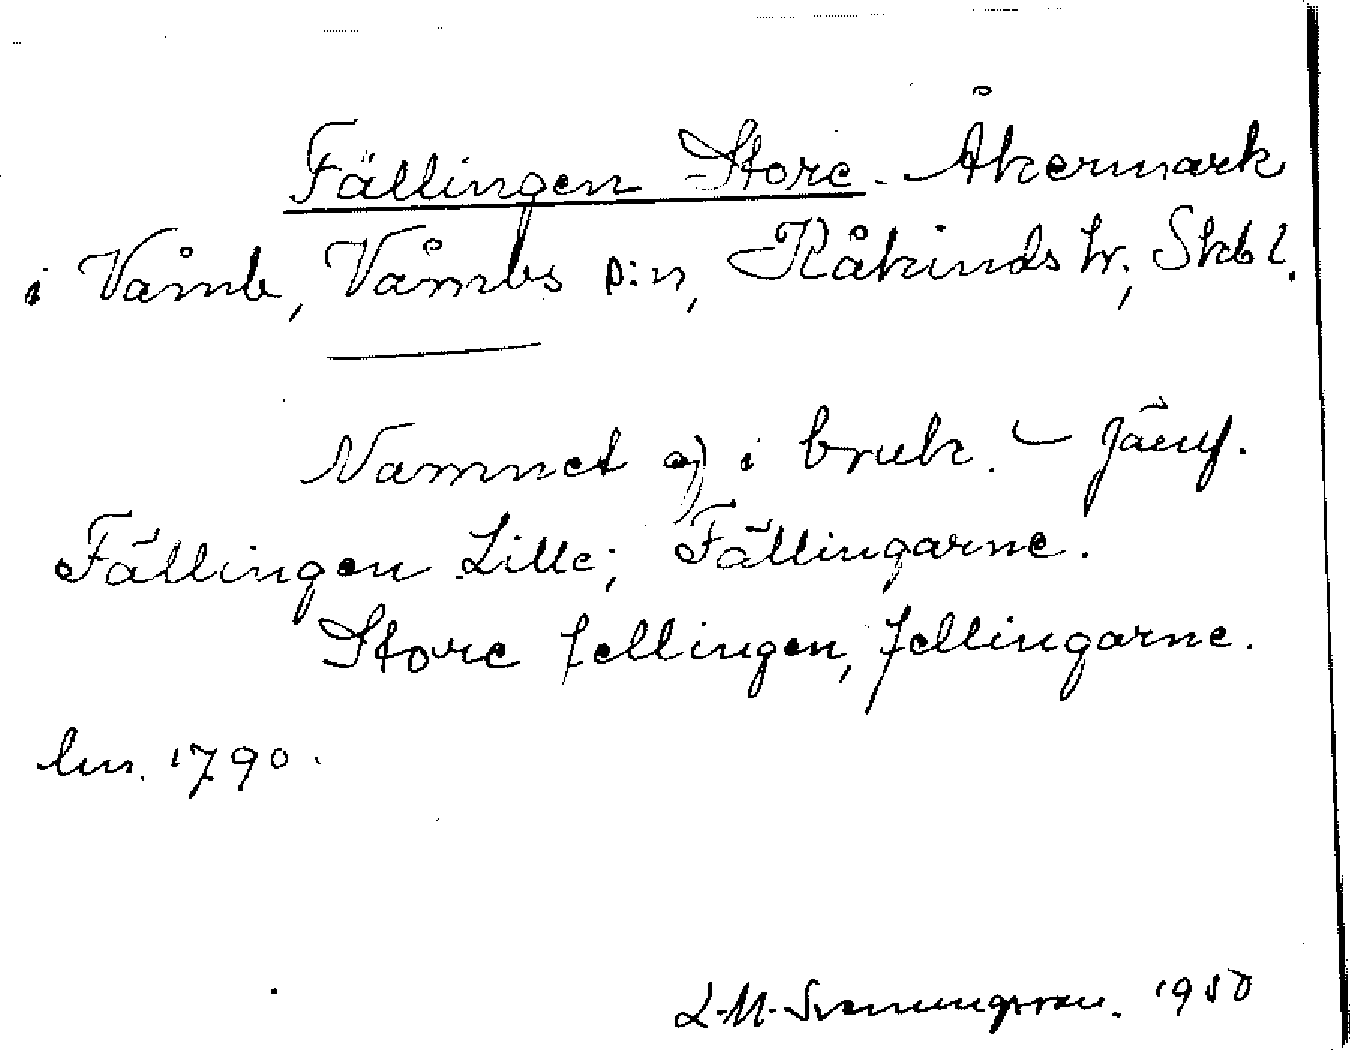 Fällingen Store. Åkermark
i Våmb, Våmbs s:n, Kåkinds hr., Skbl.
Namnet ej i bruk. – Jämf.
Fällingen Lille; Fällingarne.
Store fellingen, fellingarne.
lm. 1790.
L.M. Svenungsson. 1950